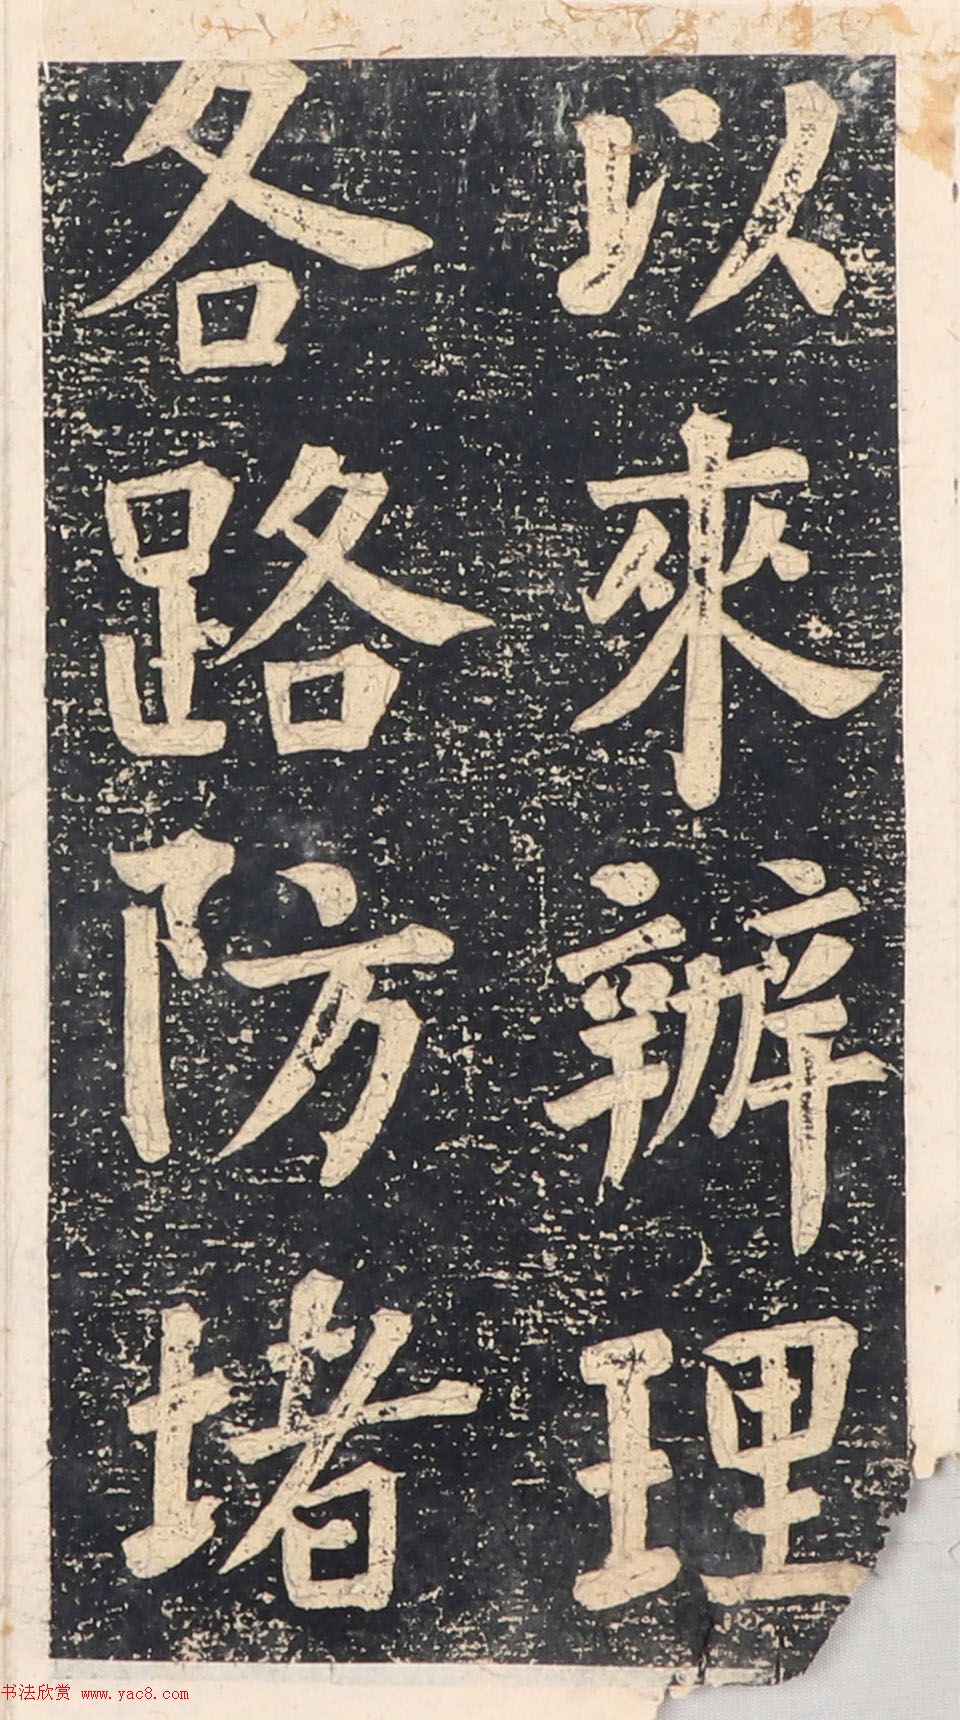 以來辦理
各路防堵
书法欣赏 www.yac8.com